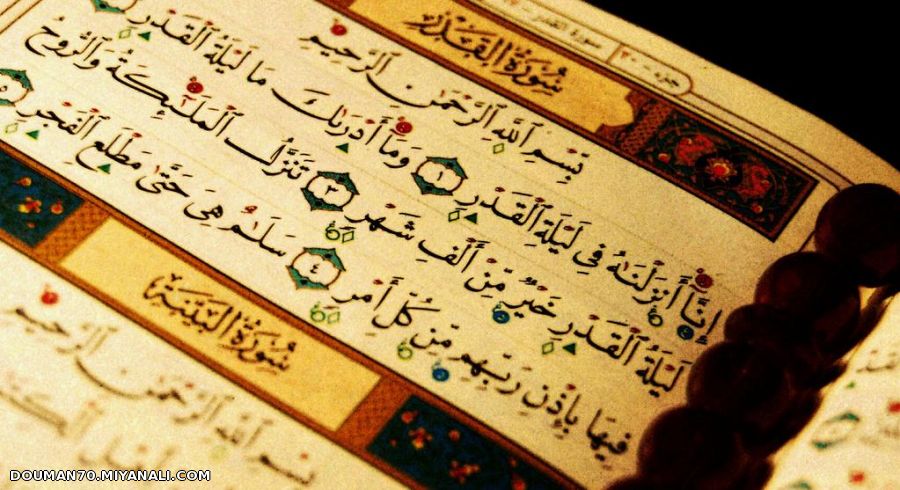 جزء ٣٠ سورة القدر
سُورَةُ الْقَدْرِ
بِسْمِ ٱللَّهِ ٱلرَّحْمَٰنِ ٱلرَّحِيمِ
إِنَّآ أَنزَلْنَٰهُ فِى لَيْلَةِ ٱلْقَدْرِ ١ وَمَآ أَدْرَىٰكَ مَا لَيْلَةُ ٱلْقَدْرِ
لَيْلَةُ ٱلْقَدْرِ خَيْرٌ مِّنْ أَلْفِ شَهْرٍ ٣ تَنَزَّلُ ٱلْمَلَٰٓئِكَةُ وَٱلرُّوحُ
فِيهَا بِإِذْنِ رَبِّهِم مِّن كُلِّ أَمْرٍ ٤ سَلَٰمٌ هِىَ حَتَّىٰ مَطْلَعِ ٱلْفَجْرِ ٥
سُورَةُ الْبَيِّنَةِ
بِسْمِ ٱللَّهِ ٱلرَّحْمَٰنِ ٱلرَّحِيمِ
DOUMAN70.MIYANALI.COM